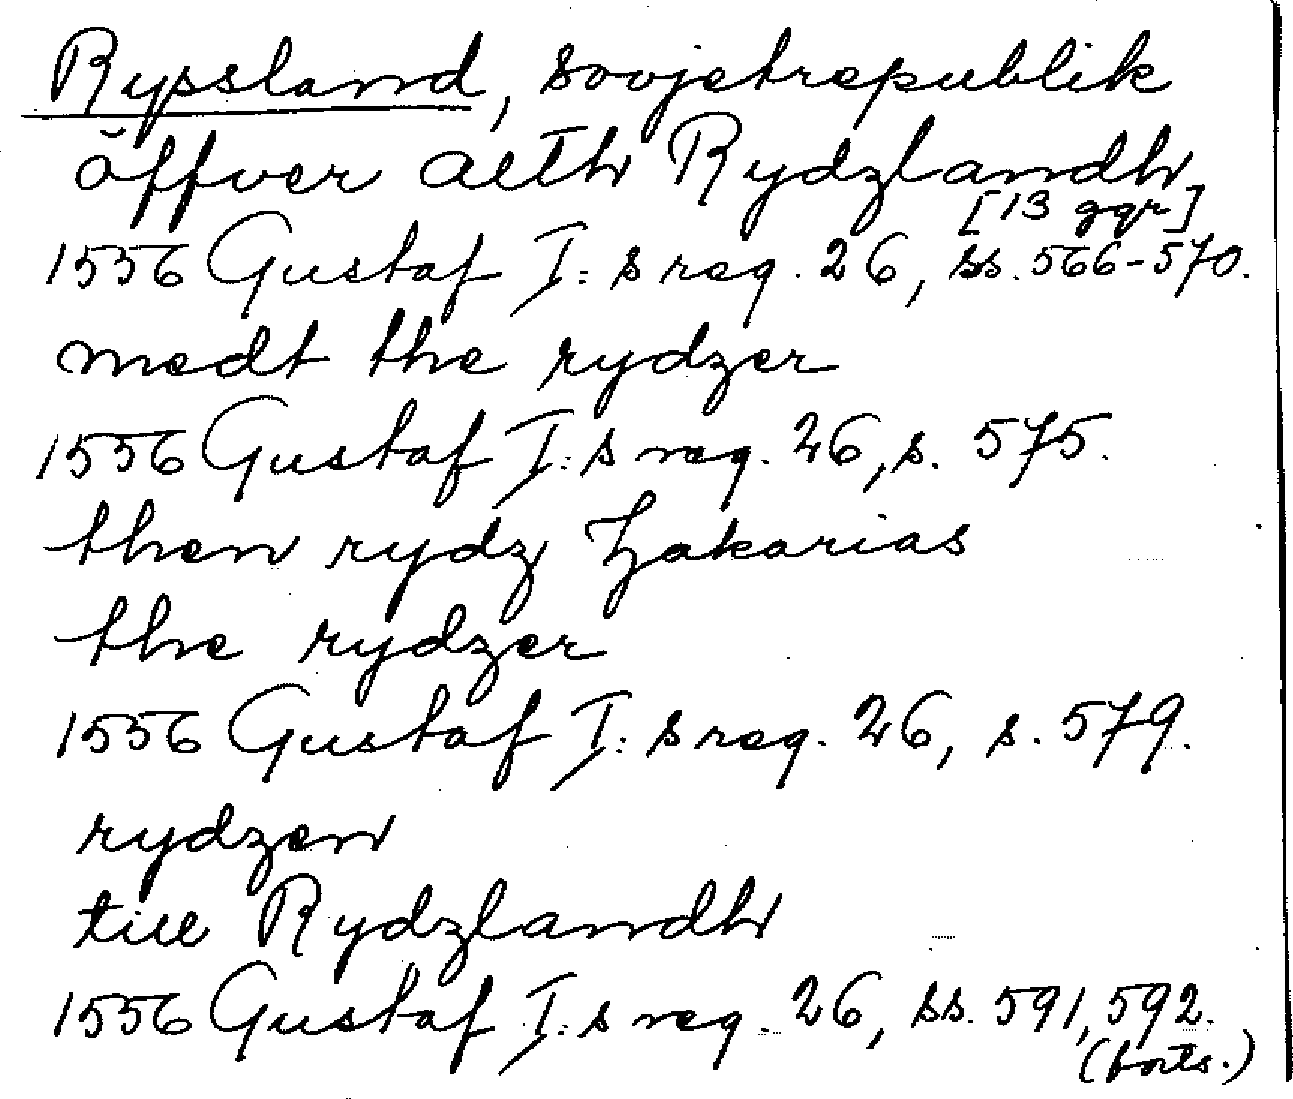 Ryssland, Sovjetrepublik
öffver alth Rydzlandh
[13 ggr]
1556 Gustaf I:s reg. 26, ss. 566-570.
medt the rydzer
1556 Gustaf I:s reg. 26, s. 575.
then rydz Zakarias
the rydzer
1556 Gustaf I:s reg. 26, s. 579.
rydzen
till Rydzlandh
1556 Gustaf I:s reg. 26, ss. 591, 592.
(forts.)